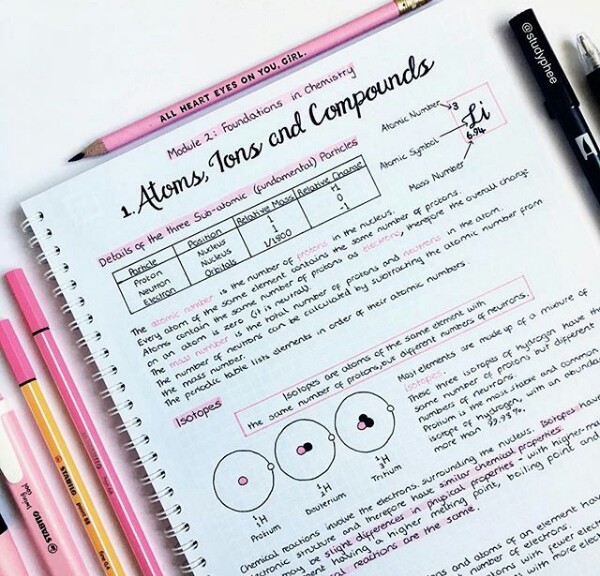 ALL HEART EYES ON YOU, GIRL.
@studyphee
Module 2: Foundations in Chemistry
1. Atoms, Ions and Compounds
Atomic Number
3
Li
6.94
Atomic Symbol
Mass Number
Details of the three Sub-atomic (fundamental) Particles
Particle Position Relative Mass Relative Charge
Proton Nucleus 1 +1
Neutron Nucleus 1 0
Electron Orbitals -1
The atomic number is the number of protons in the nucleus.
Every atom of the same element contains the same number of protons.
Atoms contain the same number of protons as electrons, therefore the overall charge
on an atom is zero (it is neutral)
The mass number is the total number of protons and neutrons in the atom.
The number of neutrons can be calculated by subtracting the atomic number from
the mass number.
The periodic table lists elements in order of their atomic numbers.
Isotopes
Isotopes are atoms of the same element with
the same number of protons, but different numbers of neutrons.
Most elements are made up of a mixture of
isotopes.
These three isotopes of Hydrogen have the
same number of protons but different
numbers of neutrons.
Protium is the most stable and common
isotope of hydrogen, with an
more than
H
Protium
H
Deuterium
H
Tritium
Chemical reactions involve the electrons surrounding the nucleus. Isotopes have
electronic structure and therefore have similar chemical properties.
may be slight differences in physical properties, with higher-
having a higher melting point, boiling point and
reactions are the same.
and atoms of an element have
number of electrons.
atoms with fewer
with more
STABILO
STABILO
STABILO
swing cool